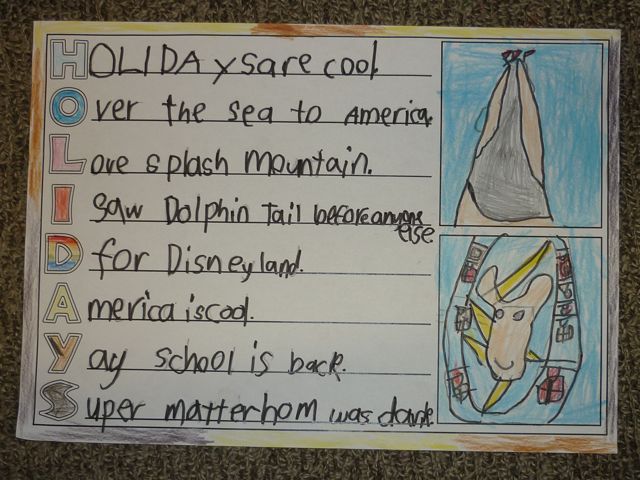 HOLIDAYs are cool
Over the sea to America.
Love splash mountain.
I saw Dolphin Tail before anyone else
D for Disneyland.
America is cool.
Yay school is back.
Super matterhom was